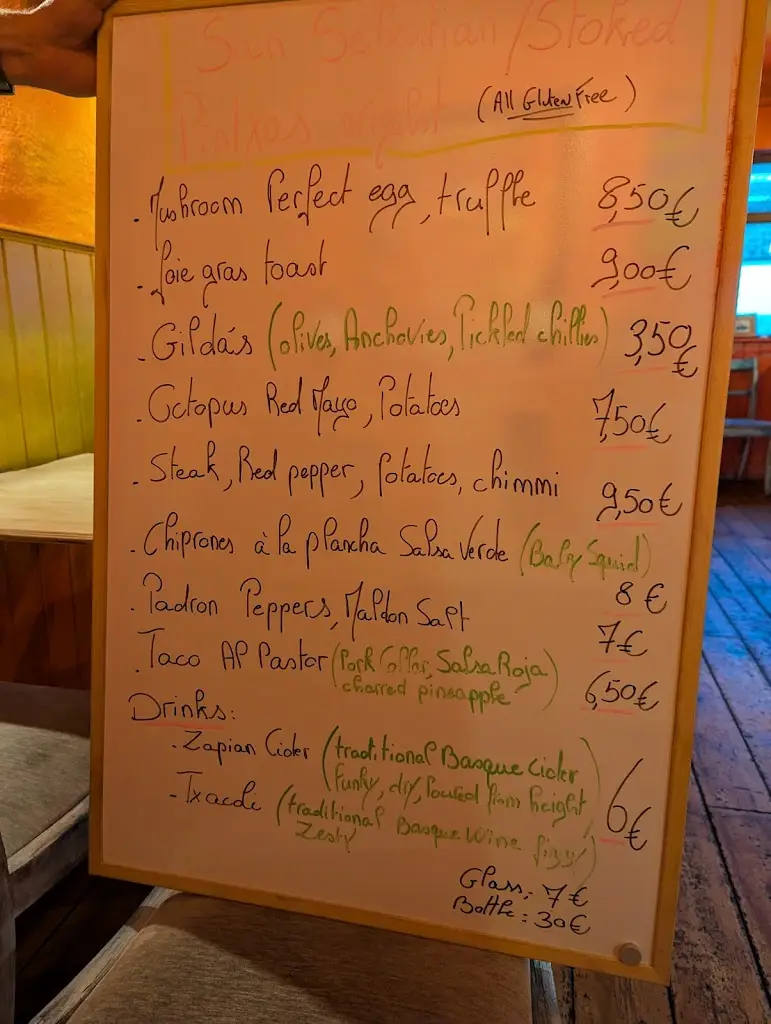 San Sebastian/Stoked
Pintxos night (All Gluten Free)
. Mushroom Perfect egg, truffle 8,50€
. foie gras toast 9,00€
. Gilda's (olives, Anchovies, Pickled chillies) 3,50€
. Octopus Red Mayo, Potatoes 7,50€
. Steak, Red pepper, Potatoes, chimmi 9,50€
. Chiprones à la plancha Salsa Verde (Baby Squid) 8€
. Padron Peppers, Maldon Salt 7€
. Taco Al Pastor (Pork Collar, Salsa Roja 6,50€
charred pineapple)
Drinks:
. Zapian Cider (traditional Basque Cider
funky, dry, Poured from height) 6€
- Txacoli (traditional Basque Wine fizzy
Zesty)
Glass: 7€
Bottle: 30€